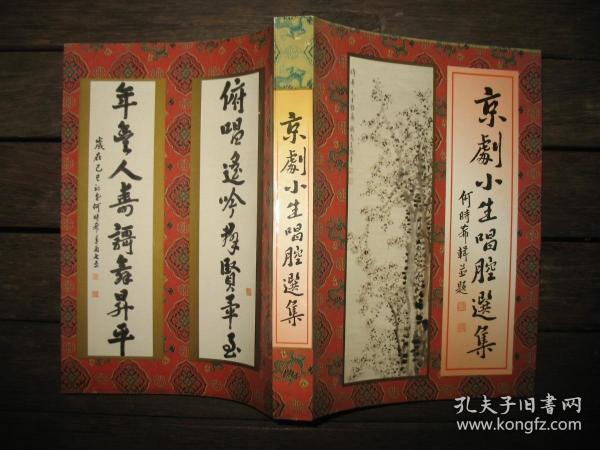 京劇小生唱腔選集
何時希輯並題
京劇小生唱腔選集
俯唱遙吟羣賢畢至
年豊人壽謌舞昇平
孔夫子旧书网
www.kongfz.com